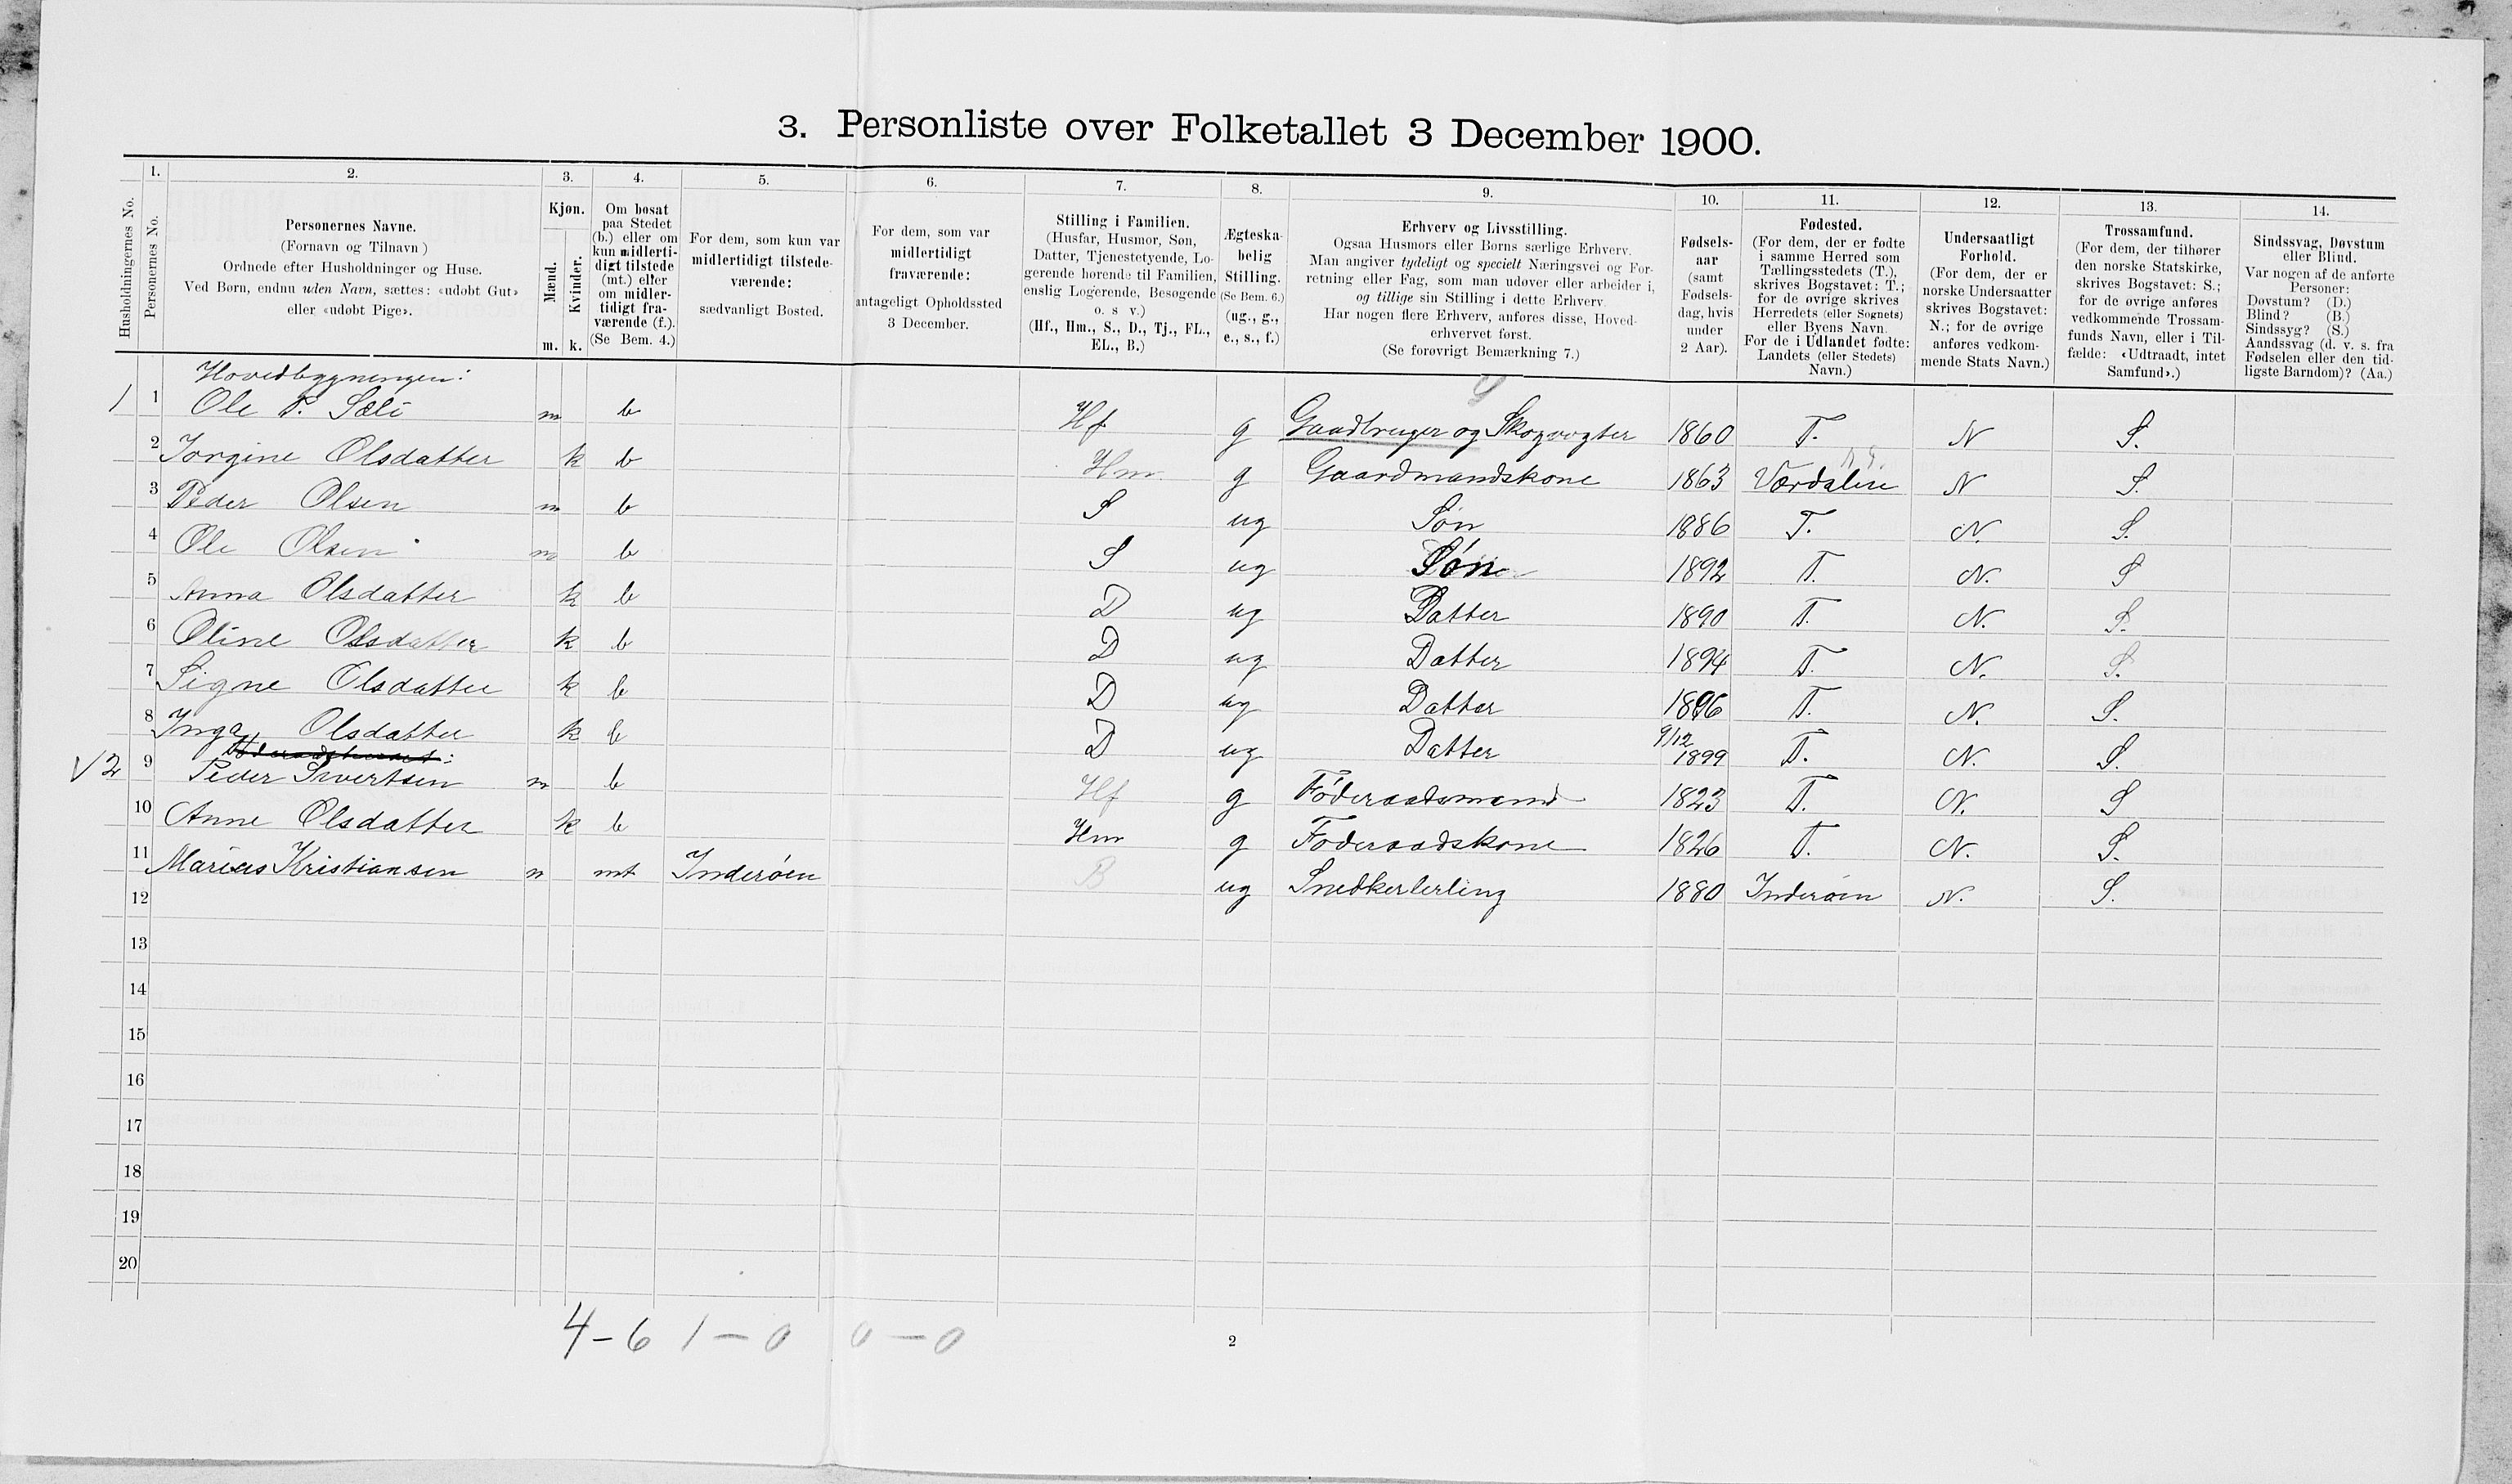 3. Personliste over Folketallet 3 December 1900.
Husholdningernes No.
1.
Personernes No.
2.
Personernes Navne.
(Fornavn og Tilnavn)
Ordnede efter Husholdninger og Huse.
Ved Børn, endnu uden Navn, sættes: «udøbt Gut»
eller «udøbt Pige».
3.
Kjøn.
Mænd.
Kvinder.
m. k.
4.
Om bosat
paa Stedet
(b.) eller om
kun midlerti-
digt tilstede
(mt.) eller
om midler-
tidigt fra-
værende (f.).
(Se Bem. 4.)
5.
For dem, som kun var
midlertidigt tilstede-
værende:
sædvanligt Bosted.
6.
For dem, som var
midlertidigt
fraværende:
antageligt Opholdssted
3 December.
7.
Stilling i Familien.
(Husfar, Husmor, Søn,
Datter, Tjenestetyende, Lo-
gerende hørende til Familien,
enslig Logerende, Besøgende
o. s v.)
(Hf., Hm., S., D., Tj., FL.,
EL., B.)
8.
Ægteska-
belig
Stilling.
(Se Bem. 6.)
(ug., g.,
e., s., f.)
9.
Erhverv og Livsstilling.
Ogsaa Husmors eller Børns særlige Erhverv.
Man angiver tydeligt og specielt Næringsvei og For-
retning eller Fag, som man udøver eller arbeider i,
og tillige sin Stilling i dette Erhverv.
Har nogen flere Erhverv, anføres disse, Hoved-
erhvervet først.
(Se forøvrigt Bemærkning 7.)
10.
Fødsels-
aar
(samt
Fødsels-
dag, hvis
under
2 Aar).
11.
Fødested.
(For dem, der er fødte
i samme Herred som
Tællingsstedets (T.),
skrives Bogstavet: T.;
for de øvrige skrives
Herredets (eller Sognets)
eller Byens Navn.
For de i Udlandet fødte:
Landets (eller Stedets)
Navn.)
12.
Undersaatligt
Forhold.
(For dem, der er
norske Undersaatter
skrives Bogstavet:
N.; for de øvrige
anføres vedkom-
mende Stats Navn.)
13.
Trossamfund.
(For dem, der tilhører
den norske Statskirke,
skrives Bogstavet: S.;
for de øvrige anføres
vedkommende Trossam-
funds Navn, eller i Til-
fælde: «Udtraadt, intet
Samfund».)
14.
Sindssvag, Døvstum
eller Blind.
Var nogen af de anførte
Personer:
Døvstum? (D.)
Blind? (B.)
Sindssyg? (S.)
Aandssvag (d. v. s. fra
Fødselen eller den tid-
ligste Barndom)? (Aa.)
Hovedbygningen:
1 1 Ole P. Sæli m b Hf g Gaadbruger og Skogvogter 1860 T. N S.
2 Jorgine Olsdatter k b Hm g Gaardmandskone 1863 Værdalen N S.
3 Peder Olsen m b S ug Søn 1886 T. N. S.
4 Ole Olsen m b S ug Søn 1892 T. N. S
5 Anna Olsdatter k b D ug Datter 1890 T. N. S.
6 Oline Olsdatter k b D ug Datter 1894 T. N. S.
7 Signe Olsdatter k b D ug Datter 1896 T. N. S.
8 Inga Olsdatter k b D ug Datter 9/12 1899 T. N. S.
√2 9 Peder Sivertsen m b Hf g Føderaadsmand 1823 T. N. S
10 Anne Olsdatter k b Hm g Føderaadskone 1826 T. N. S.
11 Marius Kristiansen m mt Inderøen B ug Snedkerlerling 1880 Inderøen N. S.
12
13
14
15
16
17
18
19
20
4-6 1-0 0-0
2